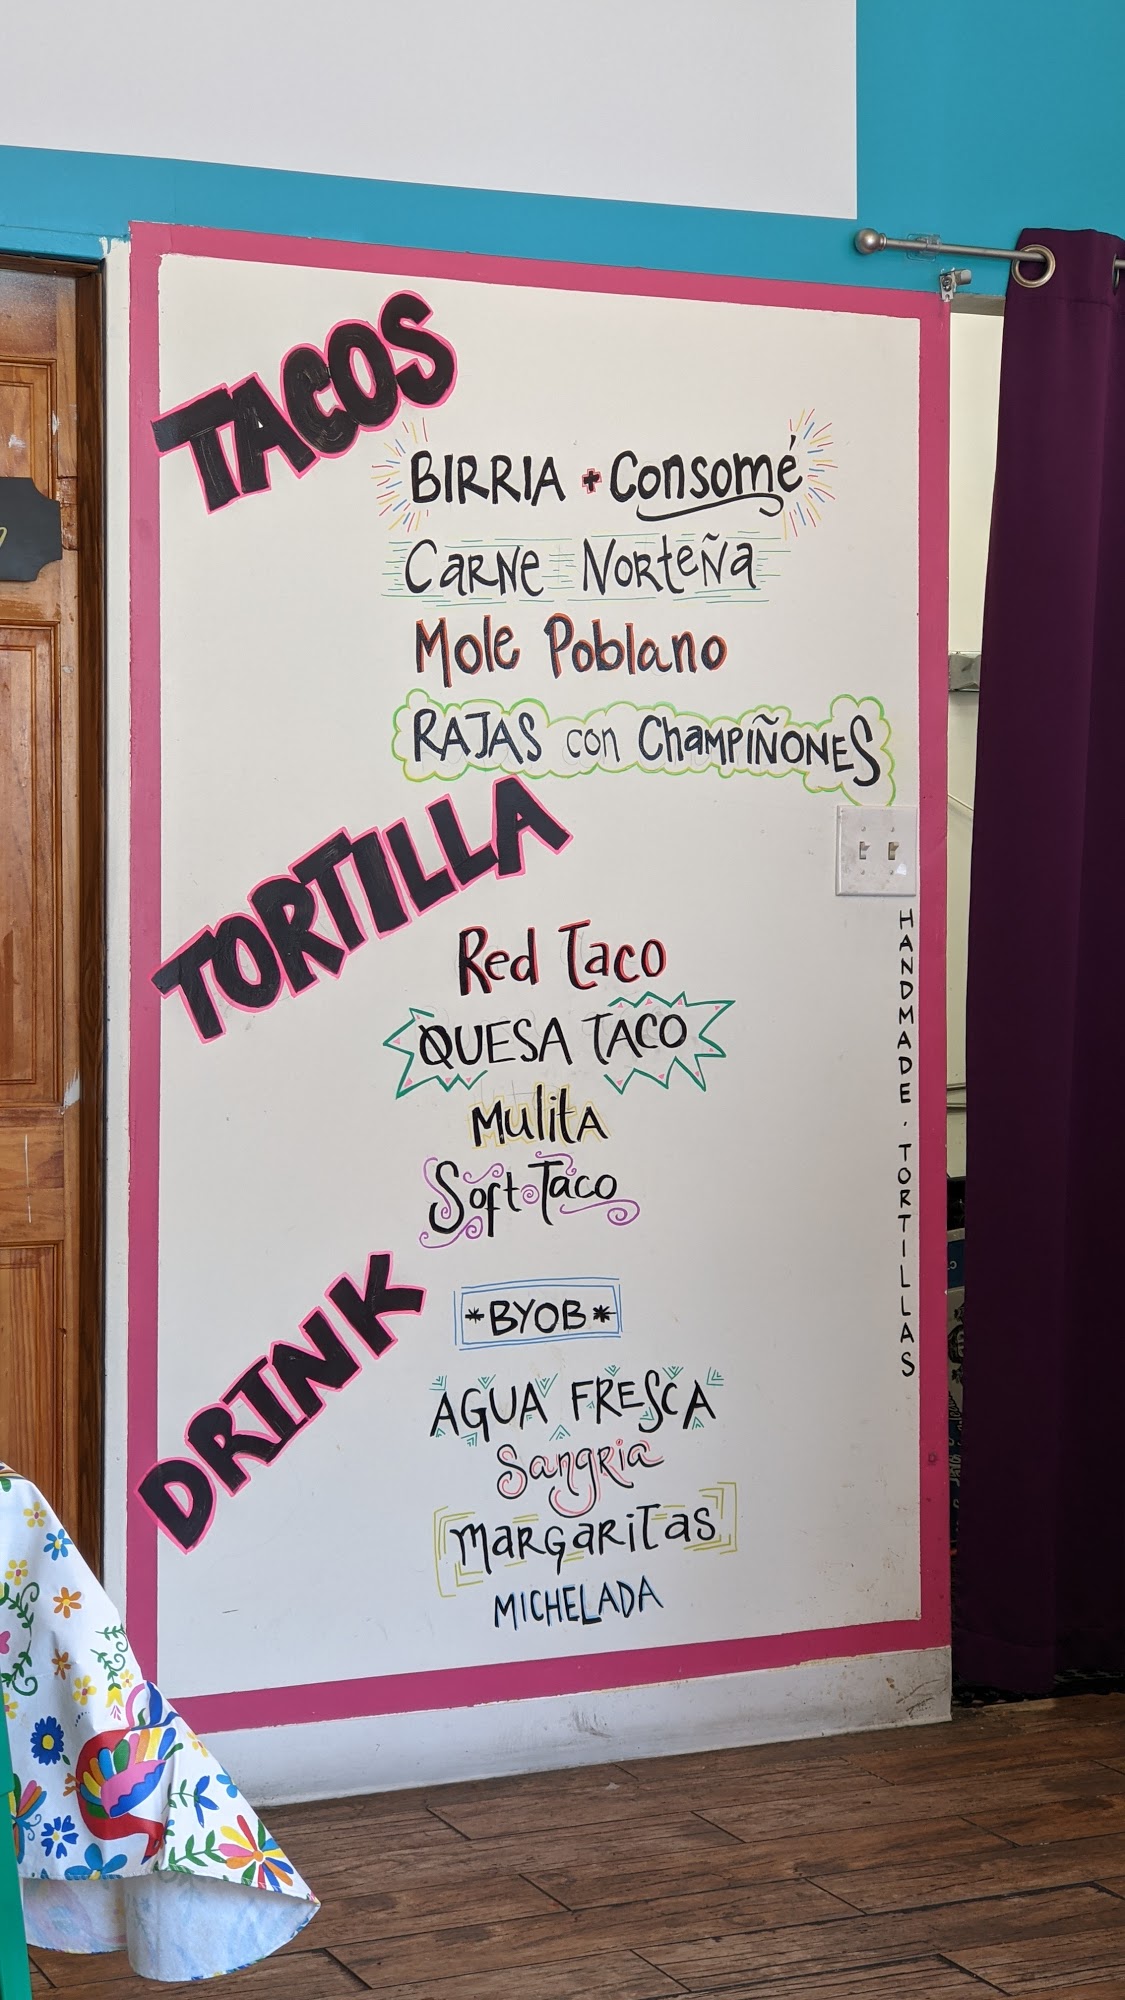 TACOS
BIRRIA + Consomé
Carne Norteña
Mole Poblano
RAJAS con ChamPIÑONES
TORTILLA
Red Taco
QUESA TACO
MulitA
Soft Taco
DRINK
*BYOB*
AGUA FRESCA
Sangria
MARGARITAS
MICHELADA
HANDMADE · TORTILLAS